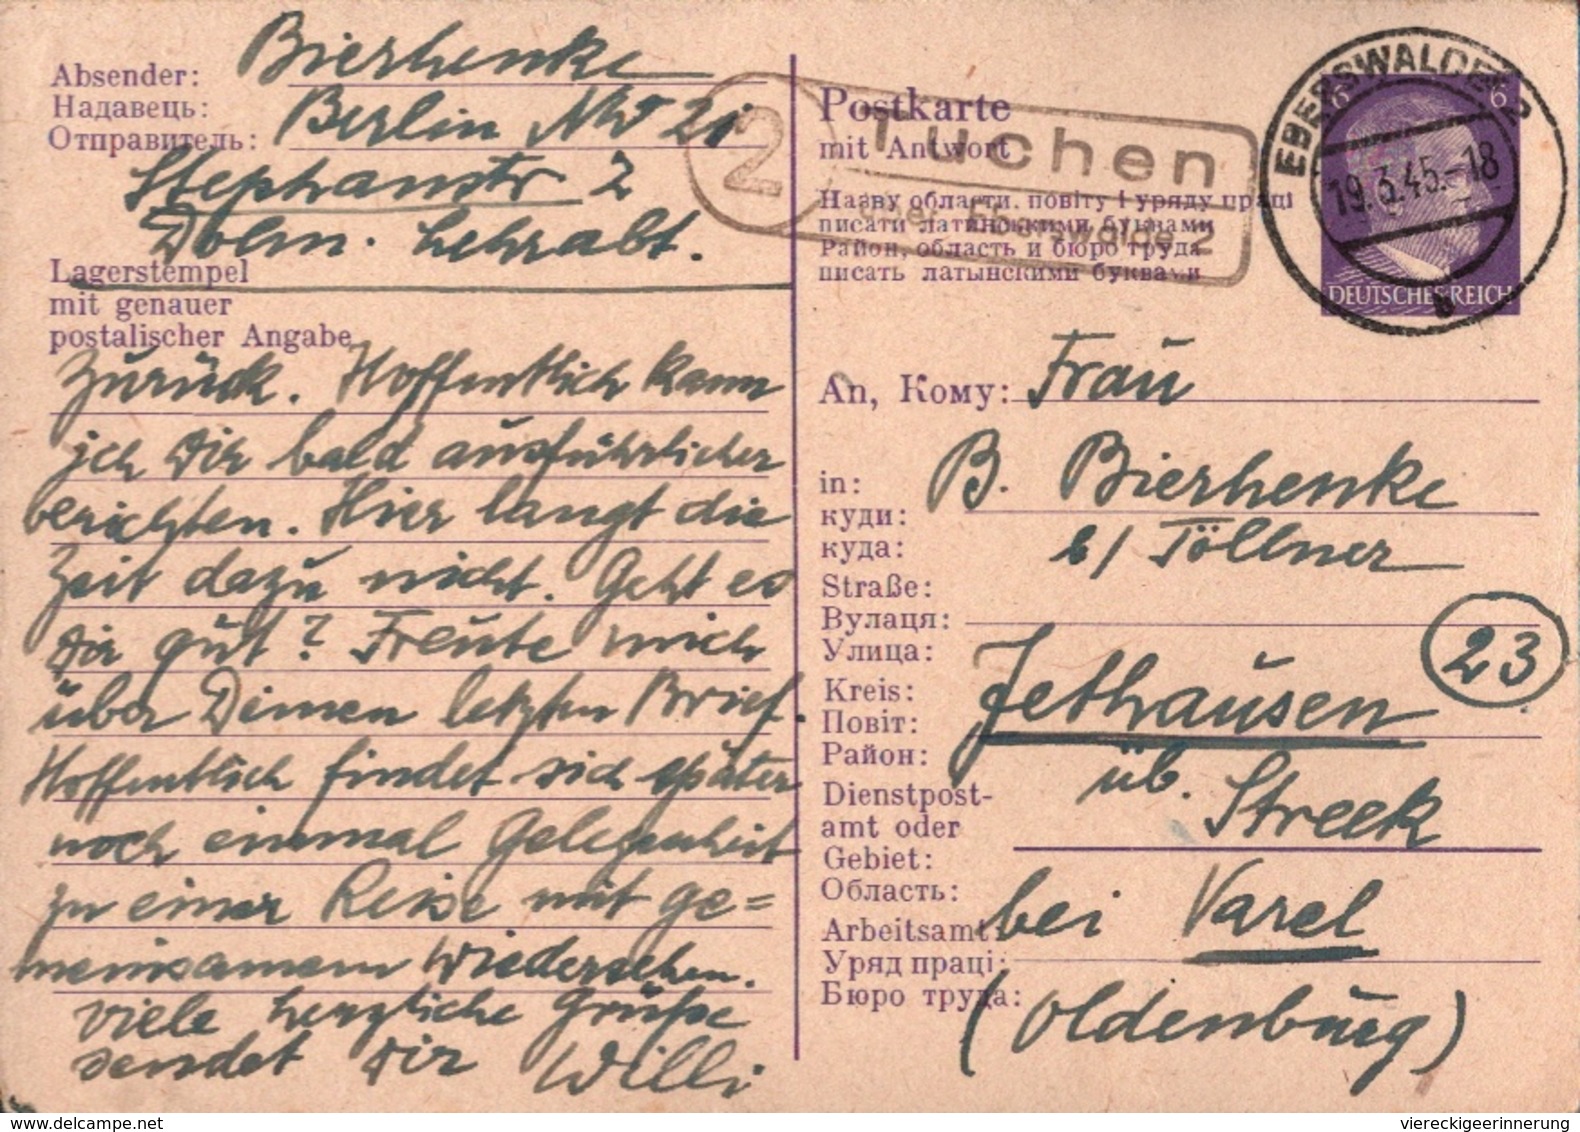 Absender: Bierhenke
Надавець:
Отправитель: Berlin NW 21
Stephanstr 2
Dolm. Lehrabt.
Lagerstempel
mit genauer
postalischer Angabe
zurück. Hoffentlich kann
ich Dir bald ausführlicher
berichten. Hier langt die
Zeit dazu nicht. Geht es
Dir gut? Freute mich
über Deinen letzten Brief.
Hoffentlich findet sich später
noch einmal Gelegenheit
zu einer Reise mit ge=
meinsamem Wiedersehen.
Viele herzliche Grüße
sendet Dir Willi
2
Tuchen
über Eberswalde 2
Postkarte
mit Antwort
Назву области, повіту і уряду праці
писати латинськими буквами
Район, область и бюро труда
писать латынскими буквами
EBERSWALDE 2
19.3.45.-18
b
6 6
DEUTSCHES REICH
An, Кому: Frau
in: B. Bierhenke
куди:
куда: b/ Töllner
Straße:
Вулаця:
Улица:
23
Kreis: Jethausen
Повіт:
Район: üb. Streek
Dienstpost-
amt oder
Gebiet:
Область:
Arbeitsamt: bei Varel
Уряд праці:
Бюро труда: (Oldenburg)
viereckigeerinnerung